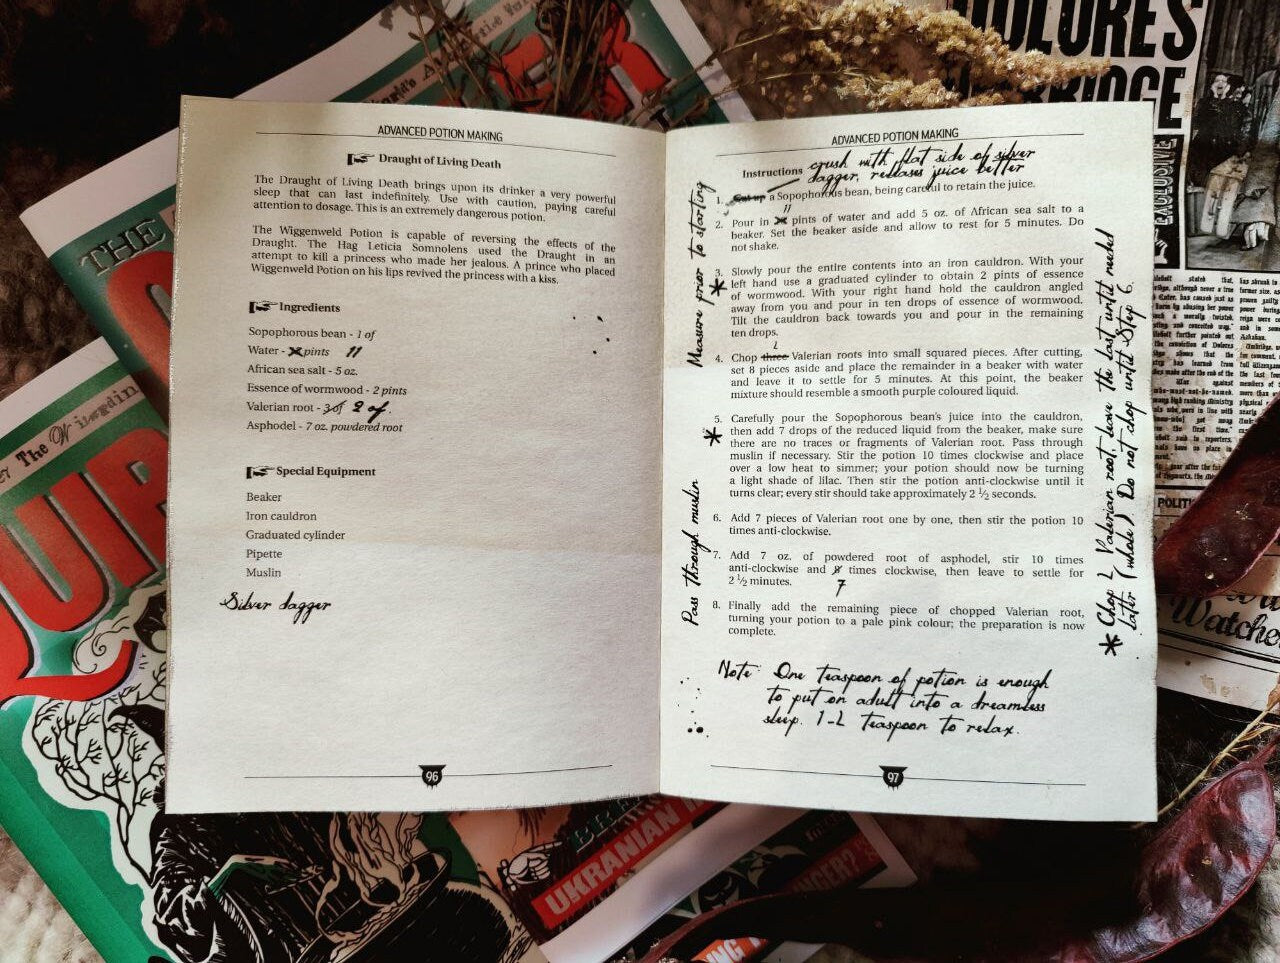 ADVANCED POTION MAKING
Draught of Living Death
The Draught of Living Death brings upon its drinker a very powerful
sleep that can last indefinitely. Use with caution, paying careful
attention to dosage. This is an extremely dangerous potion.
The Wiggenweld Potion is capable of reversing the effects of the
Draught. The Hag Leticia Somnolens used the Draught in an
attempt to kill a princess who made her jealous. A prince who placed
Wiggenweld Potion on his lips revived the princess with a kiss.
Ingredients
Sopophorous bean - 1 of
Water - pints 11
African sea salt - 5 oz.
Essence of wormwood - 2 pints
Valerian root - 3 of 2 of.
Asphodel - 7 oz. powdered root
Special Equipment
Beaker
Iron cauldron
Graduated cylinder
Pipette
Muslin
Silver dagger
96
ADVANCED POTION MAKING
Instructions crush with flat side of silver
dagger, releases juice better
1. Cut up a Sopophorous bean, being careful to retain the juice.
11
2. Pour in pints of water and add 5 oz. of African sea salt to a
beaker. Set the beaker aside and allow to rest for 5 minutes. Do
not shake.
3. Slowly pour the entire contents into an iron cauldron. With your
left hand use a graduated cylinder to obtain 2 pints of essence
of wormwood. With your right hand hold the cauldron angled
away from you and pour in ten drops of essence of wormwood.
Tilt the cauldron back towards you and pour in the remaining
ten drops.
2
4. Chop three Valerian roots into small squared pieces. After cutting,
set 8 pieces aside and place the remainder in a beaker with water
and leave it to settle for 5 minutes. At this point, the beaker
mixture should resemble a smooth purple coloured liquid.
5. Carefully pour the Sopophorous bean's juice into the cauldron,
then add 7 drops of the reduced liquid from the beaker, make sure
there are no traces or fragments of Valerian root. Pass through
muslin if necessary. Stir the potion 10 times clockwise and place
over a low heat to simmer; your potion should now be turning
a light shade of lilac. Then stir the potion anti-clockwise until it
turns clear; every stir should take approximately 2 ½ seconds.
6. Add 7 pieces of Valerian root one by one, then stir the potion 10
times anti-clockwise.
7. Add 7 oz. of powdered root of asphodel, stir 10 times
anti-clockwise and 8 times clockwise, then leave to settle for
2 ½ minutes.
7
8. Finally add the remaining piece of chopped Valerian root,
turning your potion to a pale pink colour; the preparation is now
complete.
Note: One teaspoon of potion is enough
to put an adult into a dreamless
sleep. 1-2 teaspoon to relax.
97
* Measure prior to starting
* Pass through muslin
* Chop 2 Valerian root, leave the last until needed
later (whole) Do not chop until Step 6.
DOLORES
EXCLUSIVE
THE
UKRANIAN
POLITI
Watche